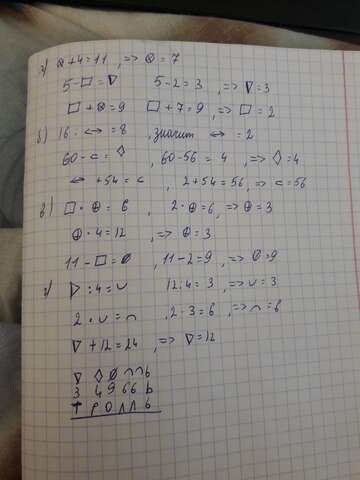 а) ⊗ + 4 = 11 , => ⊗ = 7
5 - □ = ∇ 5 - 2 = 3 , => ∇ = 3
□ + ⊗ = 9 □ + 7 = 9 , => □ = 2
б) 16 : ↔ = 8 , значит ↔ = 2
60 - ⊂ = ◊ , 60 - 56 = 4 , => ◊ = 4
↔ + 54 = ⊂ , 2 + 54 = 56, => ⊂ = 56
в) □ · ⊕ = 6 , 2 · ⊕ = 6, => ⊕ = 3
⊕ · 4 = 12 , => ⊕ = 3
11 - □ = ∅ , 11 - 2 = 9 , => ∅ = 9
г) ▷ : 4 = ∪ 12 : 4 = 3 , => ∪ = 3
2 · ∪ = ∩ , 2 · 3 = 6 , => ∩ = 6
∇ + 12 = 24 , => ∇ = 12
∇ ◊ ∅ ∩ ∩ ь
3 4 9 6 6 ь
Т Р О Л Л Ь